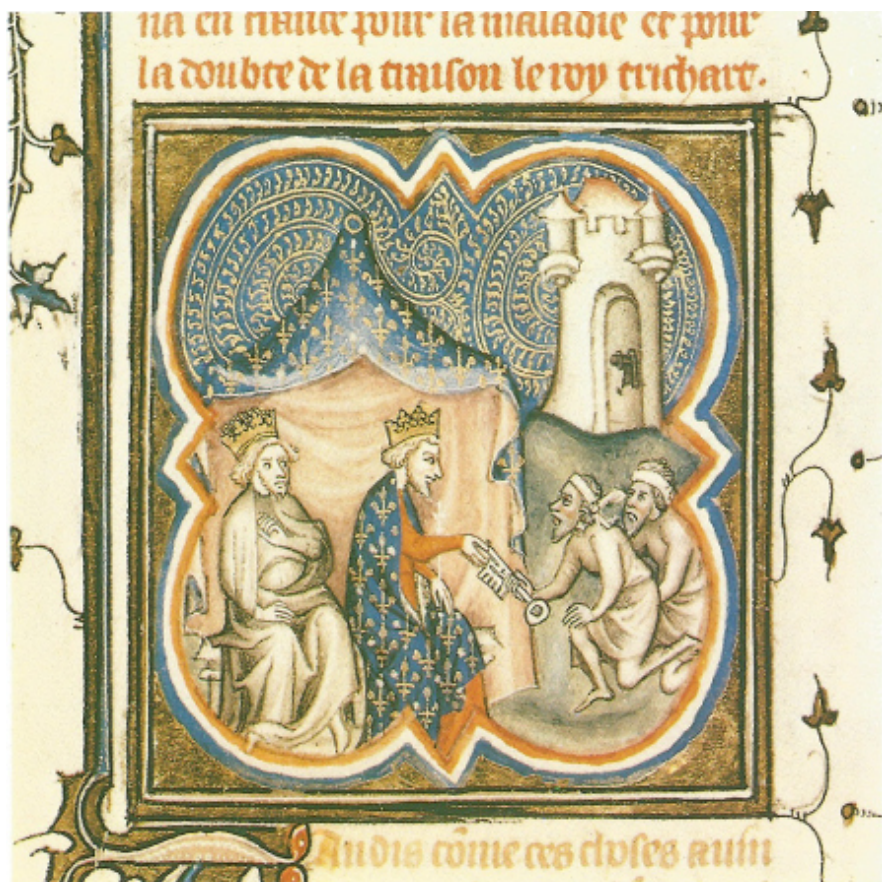 na en france pour la maladie et pour
la doubte de la traison le roy trichart.
Andis cōme ces choses ausi